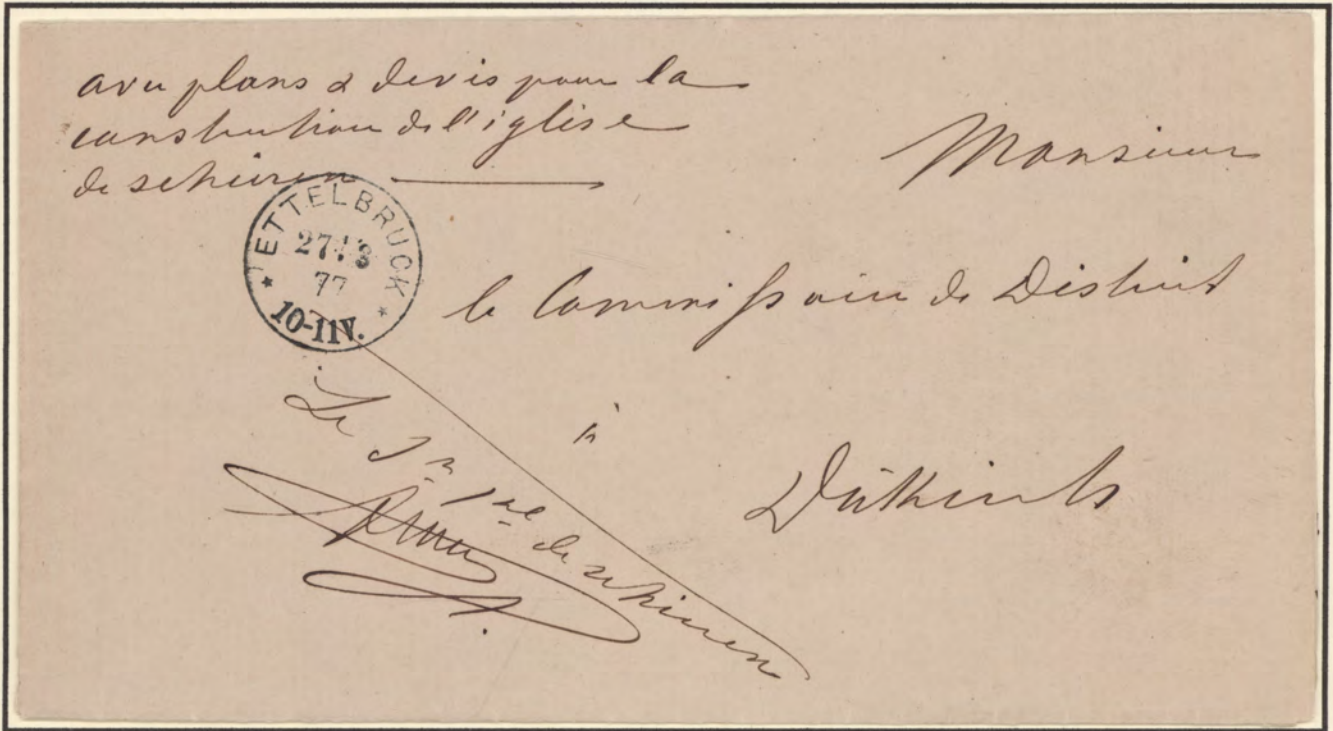 avec plans & devis pour la
construction de l'église
de schieren
Monsieur
ETTELBRUCK
77
10-11V.
le Commissaire de District
à
Diekirch
Le
de schieren